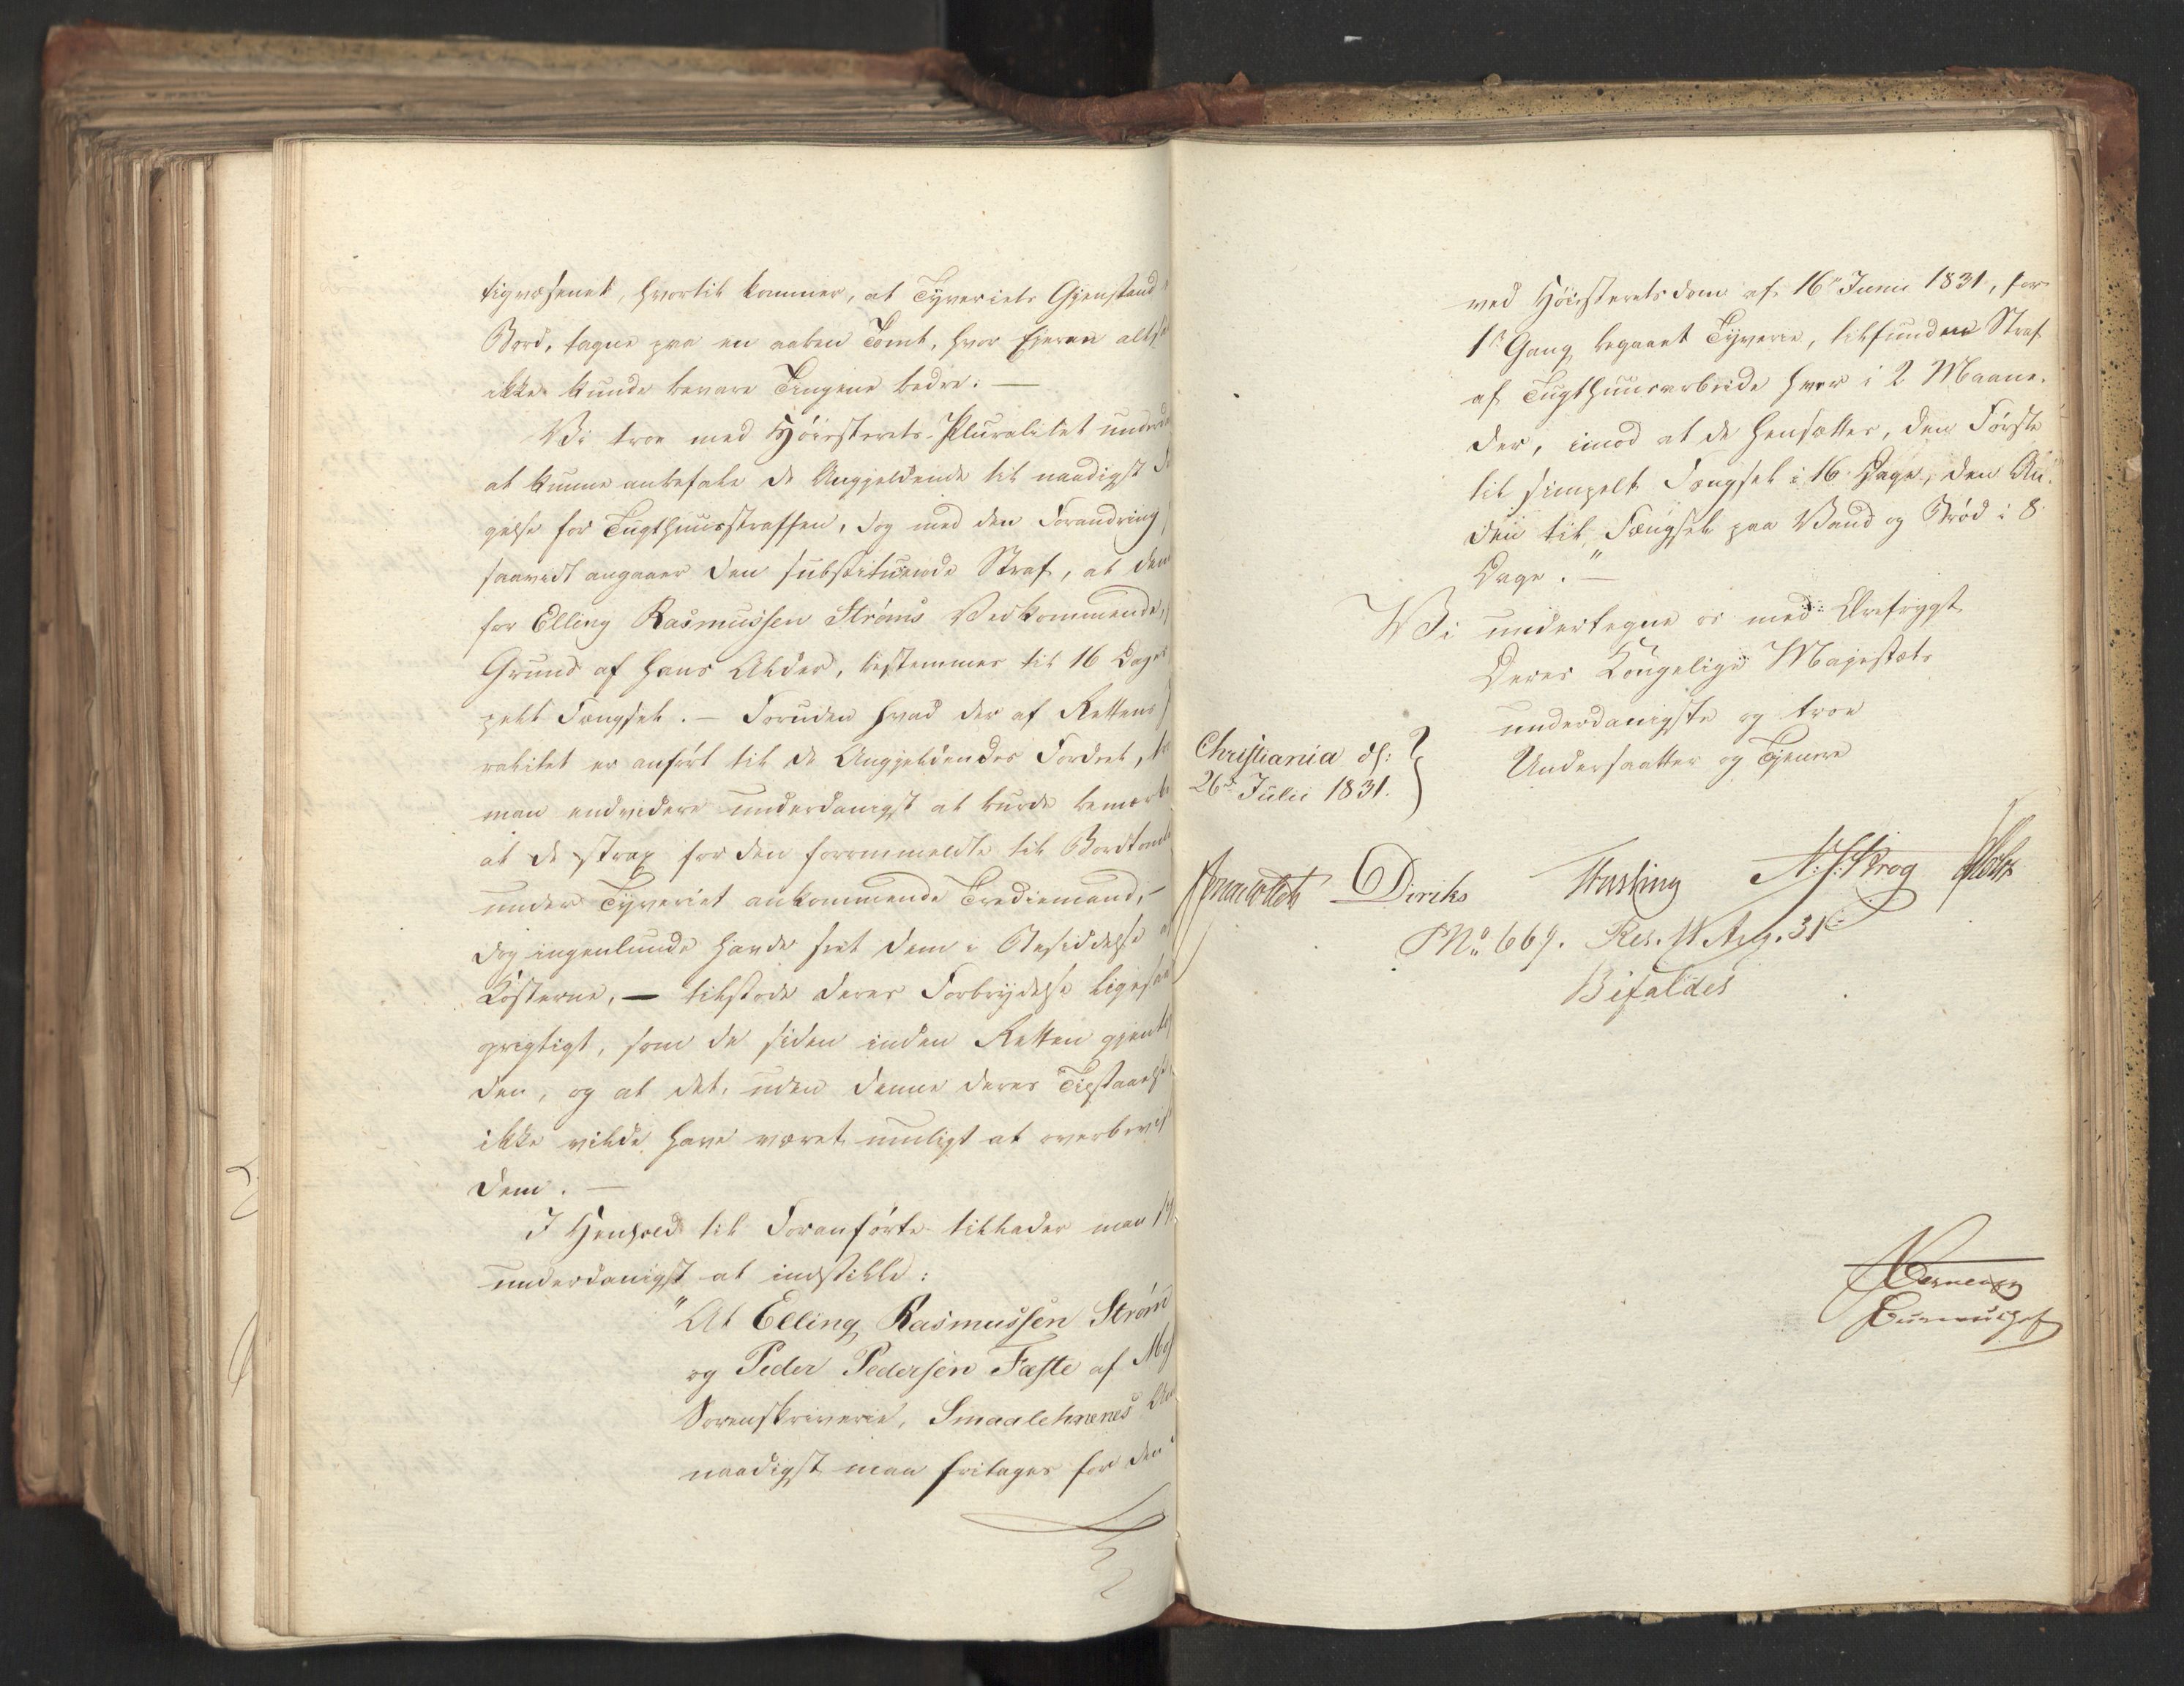 tigvæsenet, hvortil kommer, at Tyveriets Gjenstand
Bord, tagne paa en aaben Tomt, hvor Eieren alts
ikke kunde bevare Tingene bedre. —
Vi troe med Høiesterets Pluralitet underd
at kunne anbefale de Angjeldende til naadigst F
gelse for Tugthuusstraffen, dog med den Forandring
saavidt angaaer den substituerede Straf, at den
for Elling Rasmussen Strøms Vedkommende,
Grund af hans Alder, bestemmes til 16 Dages
pelt Fængsel. — Foruden hvad der af Rettens
ralitet er anført til de Angjeldendes Fordeel,
man endvidere underdanigst at burde bemærke
at de strax for den forommeldte til Bordtomt
under Tyveriet ankommende Trediemand, —
dog ingenlunde havde seet dem i Besiddelse a
Kosterne, — tilstode deres Forbrydelse ligesaa
oprigtigt, som de siden inden Retten gjentog
den, og at det uden denne deres Tilstaaelse
ikke vilde have været muligt at overbevis
dem. —
I Henhold til Foranførte tillader man sig
underdanigst at indstille:
"At Elling Rasmussen Strøm
og Peder Pedersen Fæste af
Sorenskriverie, Smaalehnenes
naadigst maa fritages for den
ved Høiesteretsdom af 16de Juni 1831, for
1ste Gang begaaet Tyverie, tilfundne Straf
af Tugthuusarbeide hver i 2 Maane-
der, imod at de hensættes, den Første
til simpelt Fængsel i 16 Dage, den An-
den til Fængsel paa Vand og Brød i 8
Dage." —
Vi undertegne os med Ærefrygt
Deres Kongelige Majestæts
underdanigste og troe
Undersaatter og Tjenere
Christiania d:
26de Julii 1831.
Diriks Krog
No 669. Res. 11 Aug. 31
Bifaldes